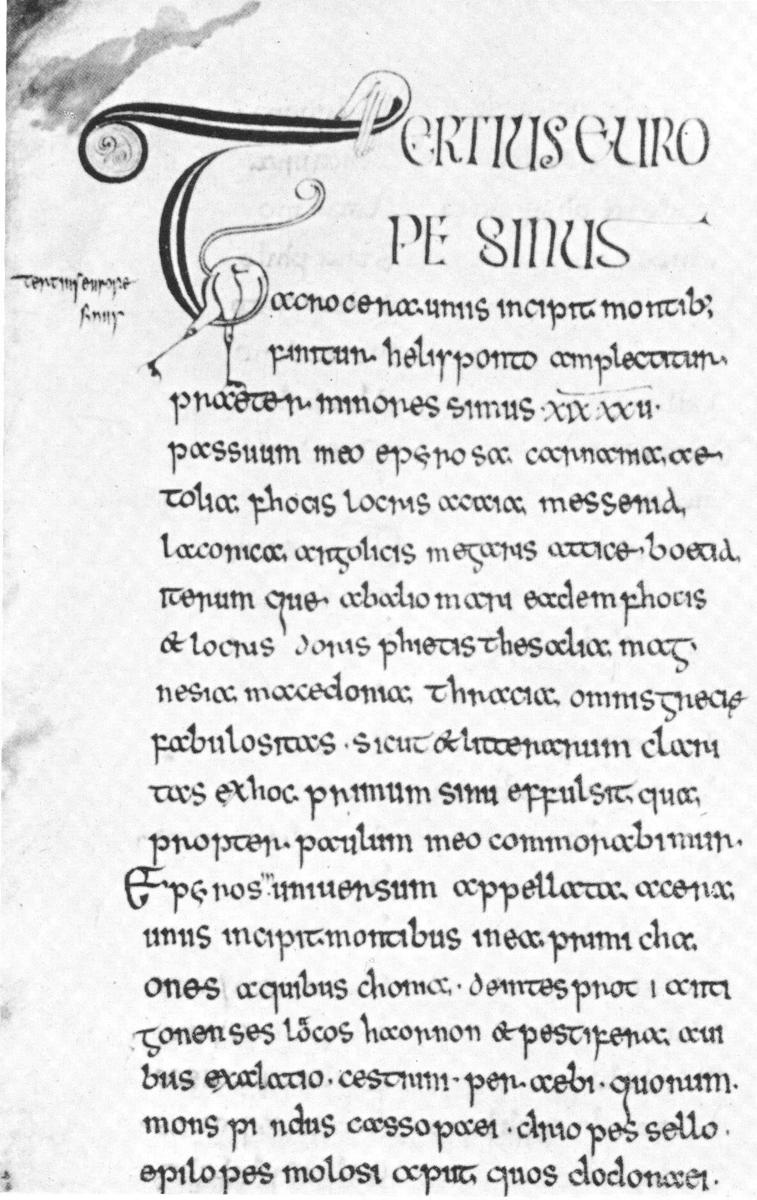 TERTIUS EURO
PE SINUS
tertius europe
sinus
acrocerauniis incipit montib;
finitur helisponto amplectitur.
praeter minores sinus .XIX XXU.
passuum meo epyrosa carnania, ae
tolia, phocis locris acaia, messenia,
laconica, argolicis megaris attice boetia,
iterum que abalio mari eadem phocis
& locris doris phietis thesalia, mag
nesia, macedonia, thracia, omnis grecię
fabulositas. sicut & litterarum clari
tas exhoc primum sinu effulsit, qua,
propter. paulum meo commorabimur.
Epyros universum appellata, acera,
uniis incipit montibus in ea, primi cha,
ones a quibus chonia. deintes prot i anti
gonenses locos haornon & pestifera, avi
bus exalatio. cestrium. per aebi. quorum.
mons pi ndus cassopaei. driopes sello.
epilopes molosi aput quos dodonaei.